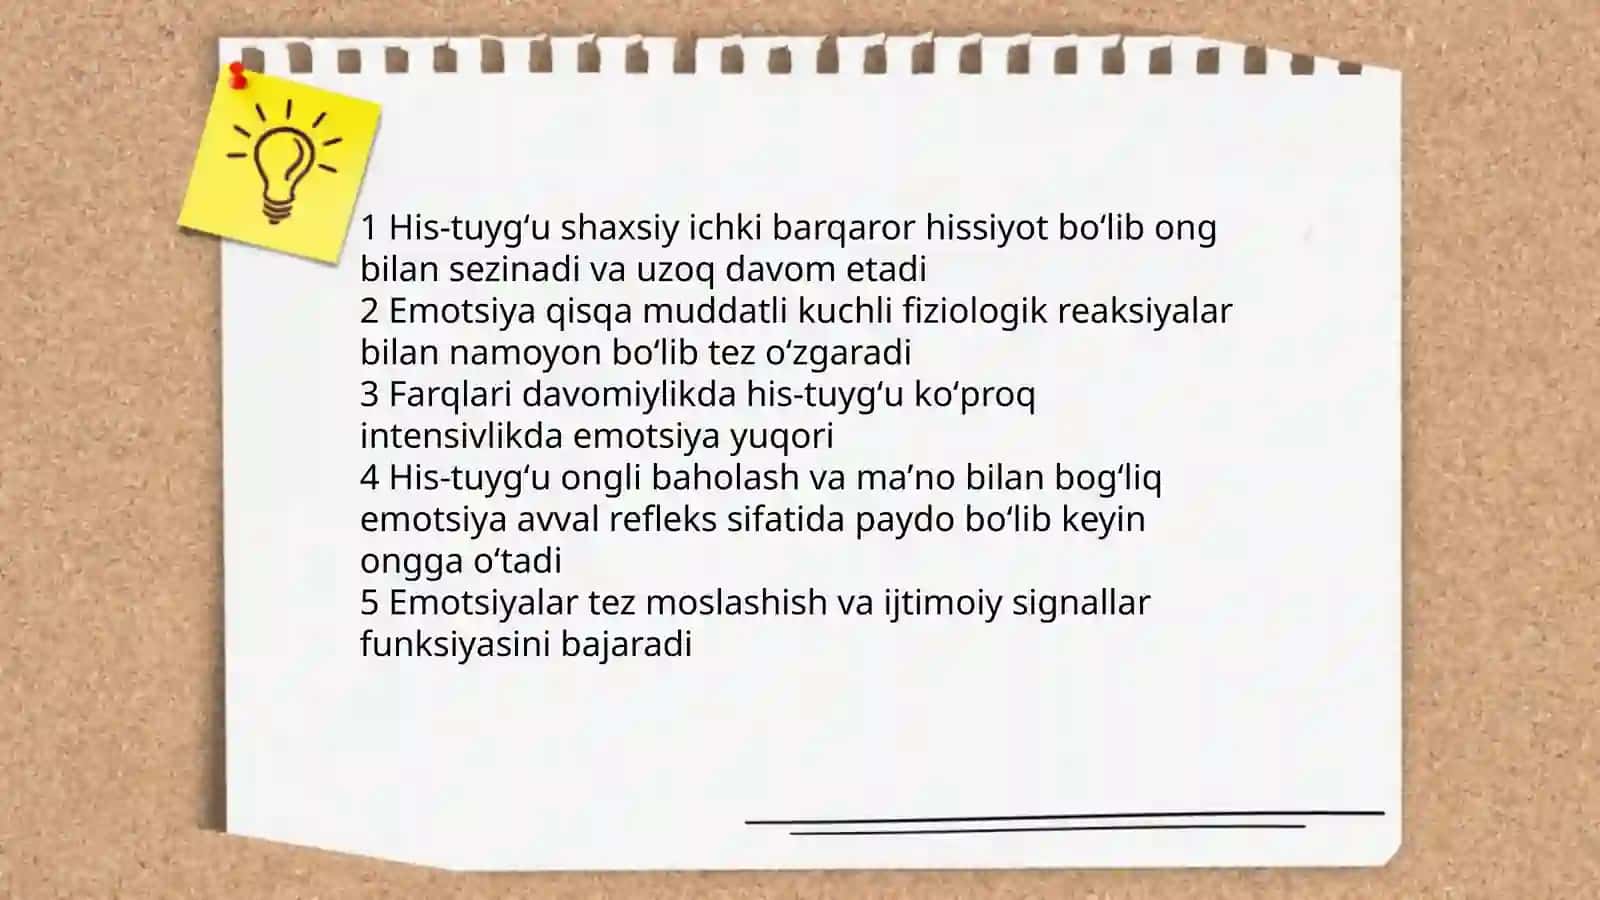 1 His-tuyg‘u shaxsiy ichki barqaror hissiyot bo‘lib ong
bilan sezinadi va uzoq davom etadi
2 Emotsiya qisqa muddatli kuchli fiziologik reaksiyalar
bilan namoyon bo‘lib tez o‘zgaradi
3 Farqlari davomiylikda his-tuyg‘u ko‘proq
intensivlikda emotsiya yuqori
4 His-tuyg‘u ongli baholash va ma’no bilan bog‘liq
emotsiya avval refleks sifatida paydo bo‘lib keyin
ongga o‘tadi
5 Emotsiyalar tez moslashish va ijtimoiy signallar
funksiyasini bajaradi